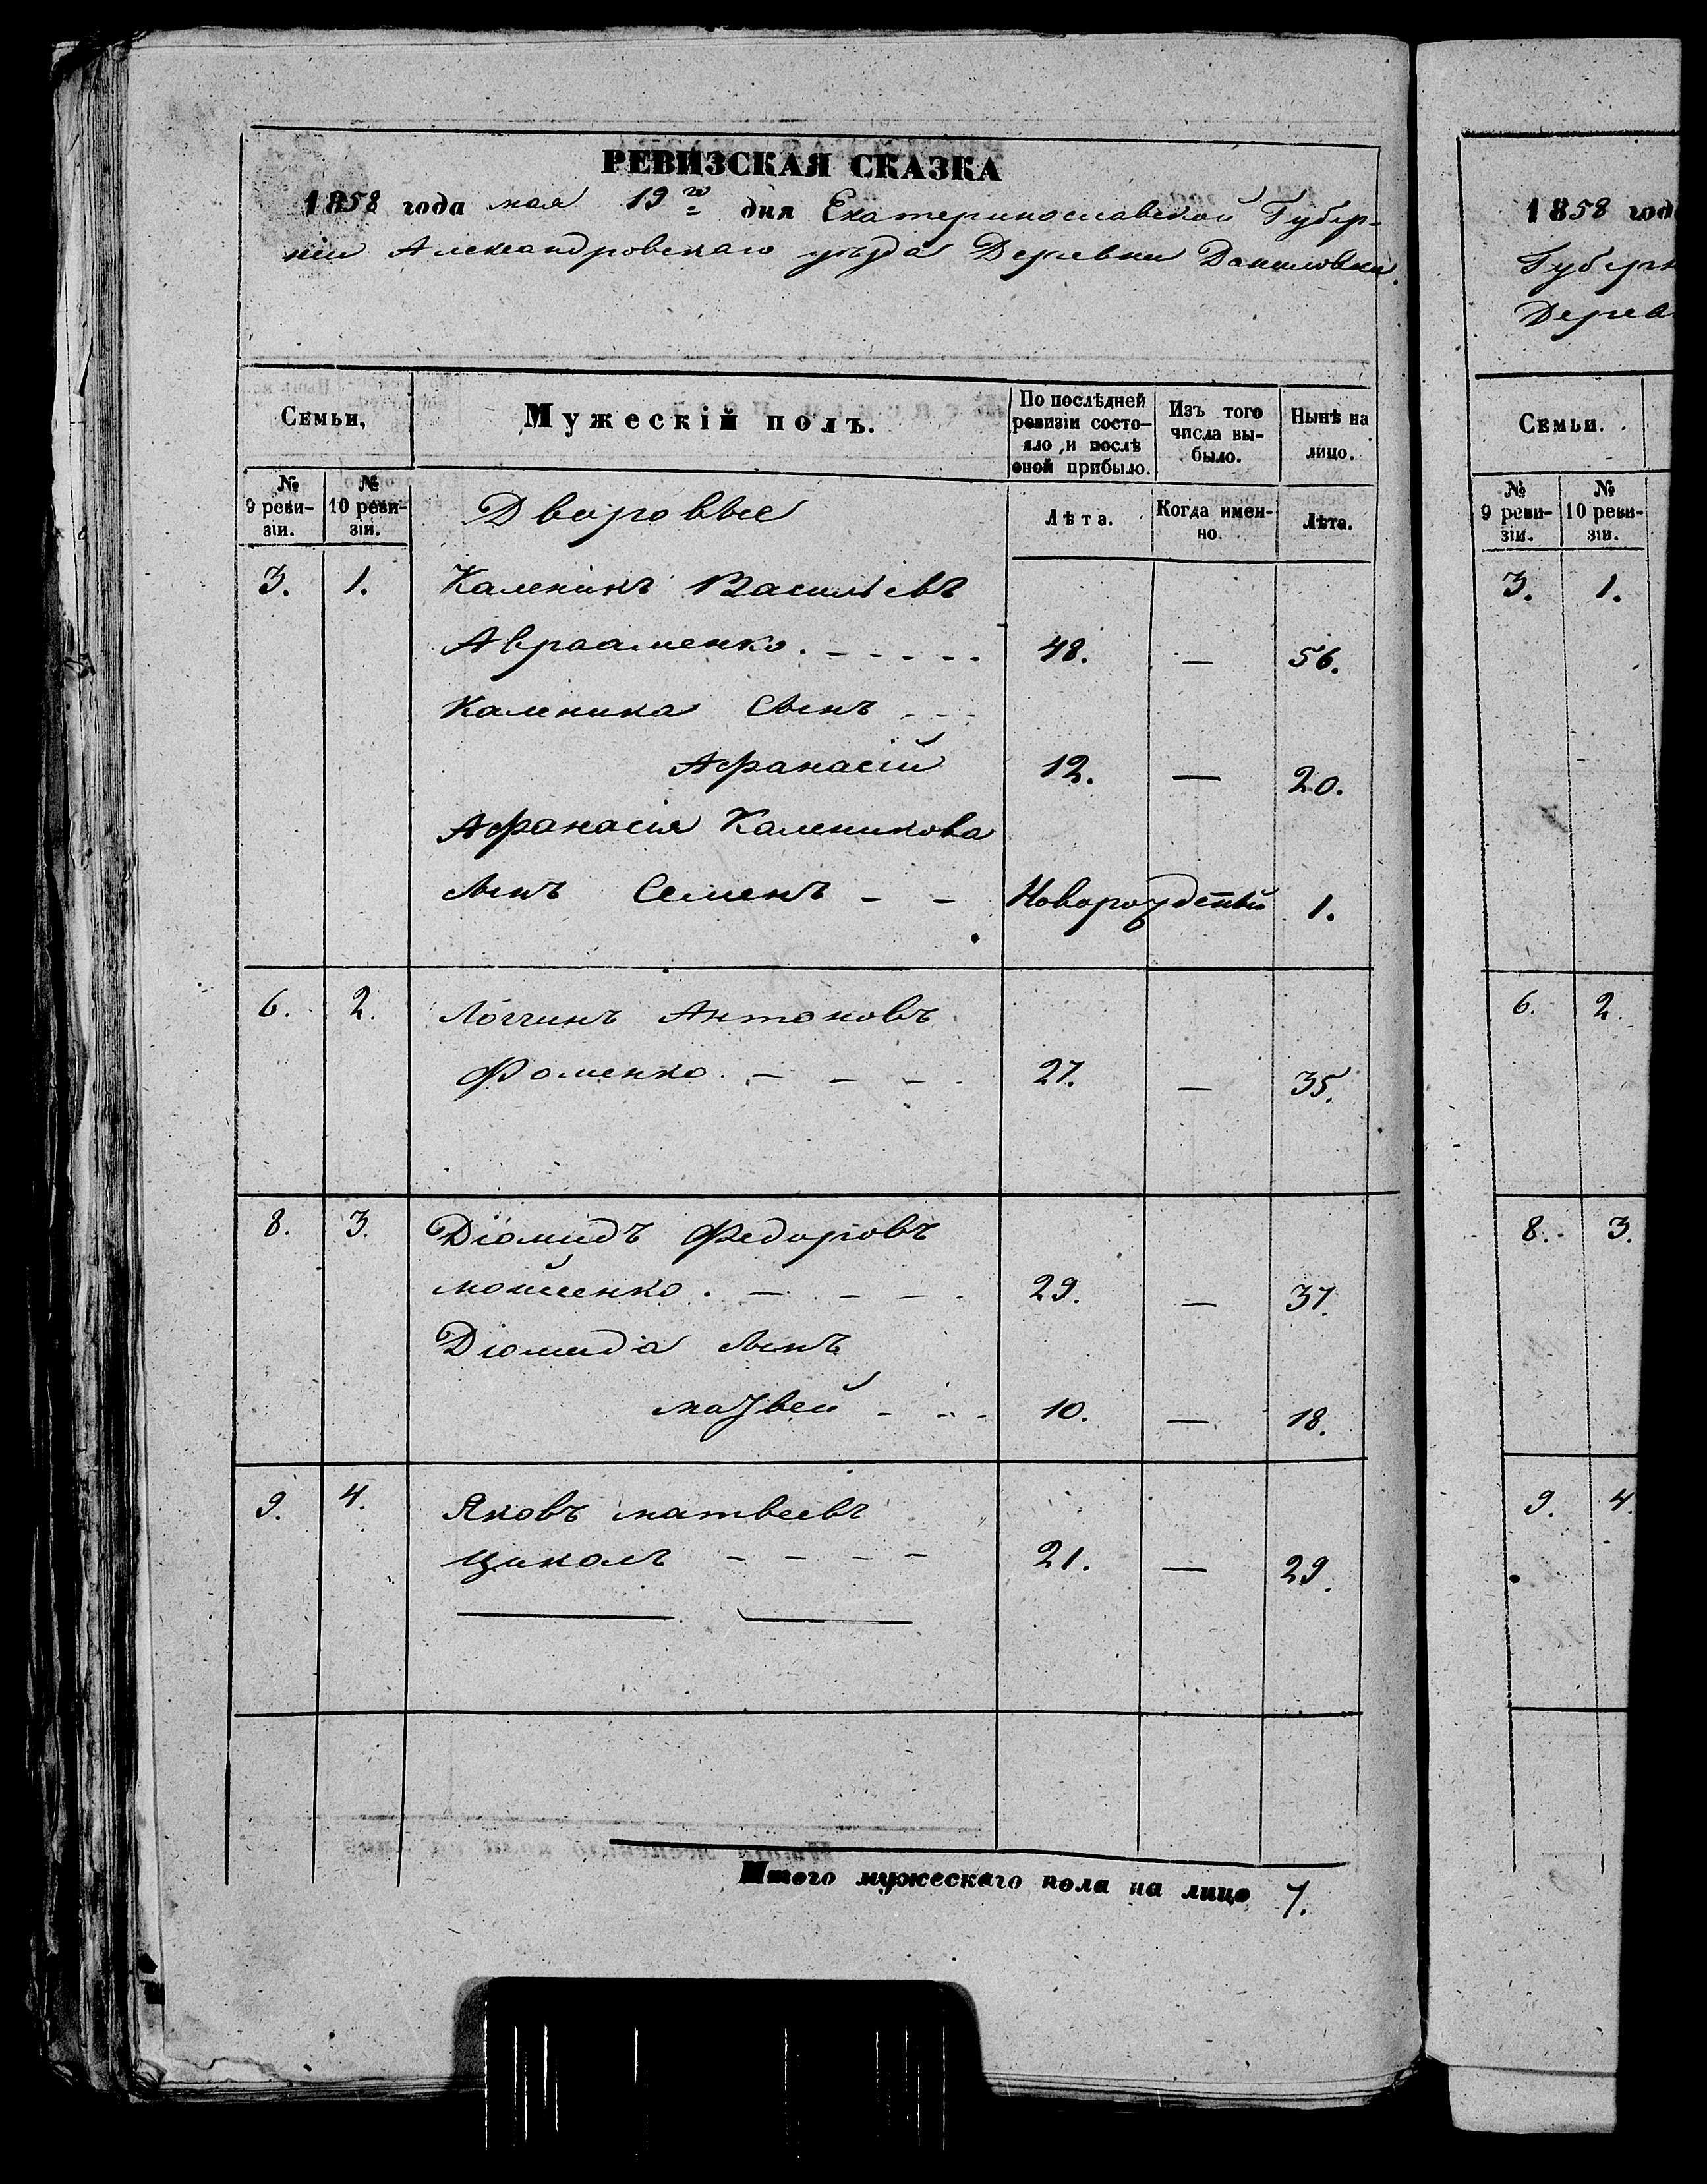 РЕВИЗСКАЯ СКАЗКА
1858 года мая 19го дня Екатеринославской Губер-
ніи Александровскаго уѣзда Деревни Даниловки.
Семьи,
Мужескій полъ.
По послѣдней ревизіи состо-
яло, и послѣ оной прибыло.
Изъ того числа вы-
было.
Нынѣ на лицо.
№ 9 реви-
зіи.
№ 10 реви-
зіи.
Дворовые
Лѣта.
Когда имен-
но.
Лѣта.
3. 1. Каленикъ Васильевъ
Авраменко. 48. — 56.
Каленика Сынъ
Афанасій 12. — 20.
Афанасія Каленикова
сынъ Семенъ — — Новорожденный 1.
6. 2. Логгинъ Антоновъ
Фоменко. — — — 27. — 35.
8. 3. Діомидъ Федоровъ
27. 29. — 37.
Діомида сынъ
Матвей 10. — 18.
9. 4. Яковъ Матвеевъ
21. — 29.
Итого мужескаго пола на лицо 7.
1858 год
Губерн
Дерев
Семьи.
№ 9 реви-
зіи.
№ 10 реви-
зіи.
3. 1.
6. 2.
8. 3.
9. 4.